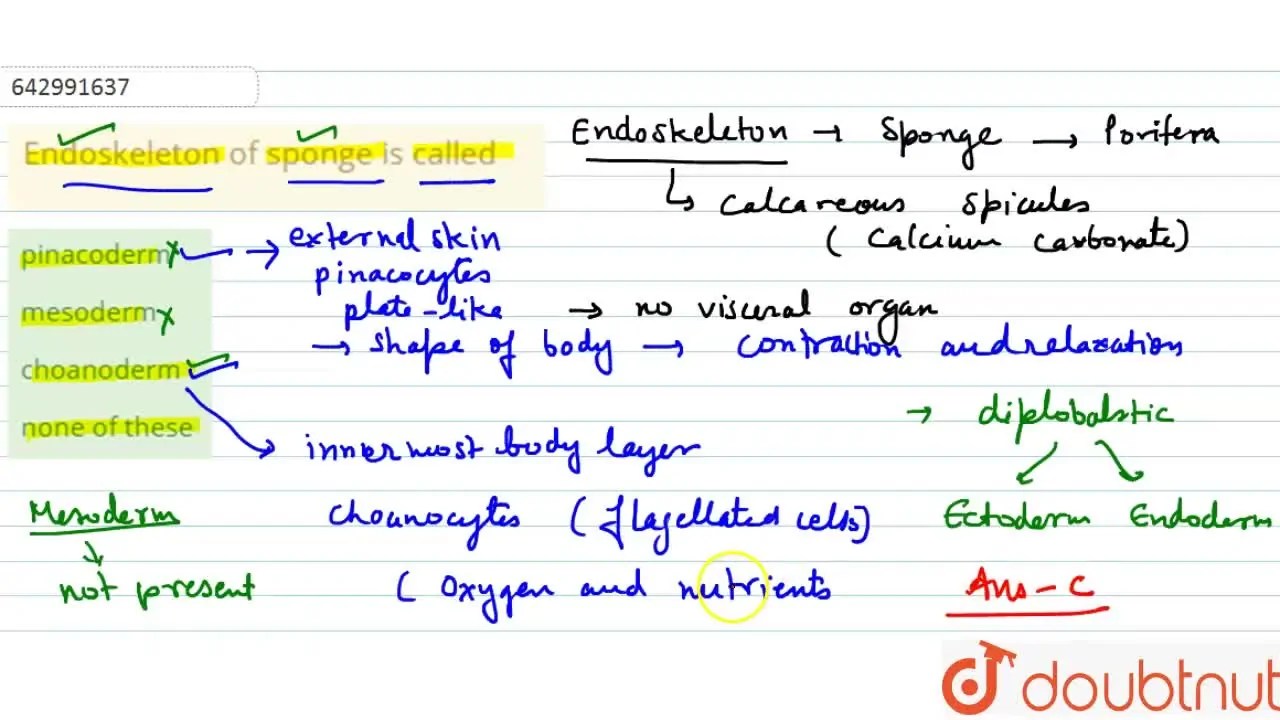 642991637
Endoskeleton of sponge is called
pinacoderm
mesoderm
choanoderm
none of these
Endoskeleton → Sponge → Porifera
Calcareous Spicules
( Calcium carbonate)
→ external skin
pinacocytes
plate-like → no visceral organ
→ shape of body → contraction and relaxation
→ diplobalstic
Ectoderm Endoderm
innermost body layer
Choanocytes ( flagellated cells)
( Oxygen and nutrients
Mesoderm
not present
Ans - C
doubtnut